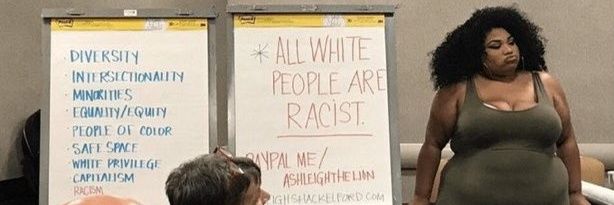 · DIVERSITY
· INTERSECTIONALITY
· MINORITIES
· EQUALITY/EQUITY
· PEOPLE OF COLOR
· SAFE SPACE
· WHITE PRIVILEGE
· CAPITALISM
RACISM
* ALL WHITE
PEOPLE ARE
RACIST.
PAYPAL ME/
ASHLEIGHTHELION
IGHSHACKELFORD.COM